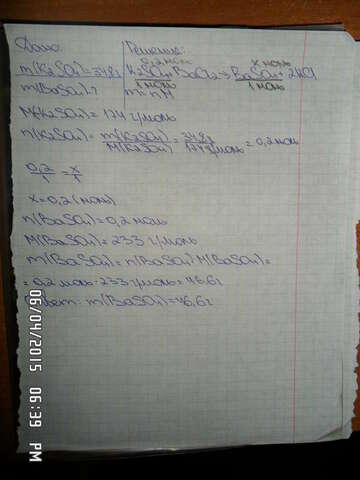 Дано:
m(K2SO4)=34,8г
m(BaSO4)-?
Решение:
0,2 моль x моль
K2SO4+BaCl2→BaSO4+2KCl
1 моль 1 моль
m=n·M
M(K2SO4)=174 г/моль
n(K2SO4)=m(K2SO4)/M(K2SO4)=34,8г/174г/моль=0,2моль
0,2/1=x/1
x=0,2(моль)
n(BaSO4)=0,2 моль
M(BaSO4)=233 г/моль
m(BaSO4)=n(BaSO4)·M(BaSO4)=
=0,2 моль·233 г/моль=46,6г
Ответ: m(BaSO4)=46,6г
06/04/2015 06:39 PM